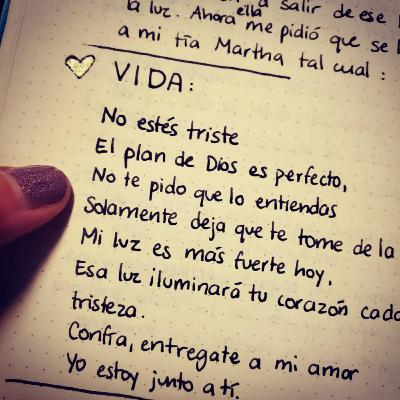 salir de ese
la luz. Ahora ella me pidió que se
a mi tía Martha tal cual :
VIDA:
No estés triste
El plan de Dios es perfecto,
No te pido que lo entiendas
Solamente deja que te tome de la
Mi luz es más fuerte hoy.
Esa luz iluminará tu corazón cada
tristeza.
Confía, entregate a mi amor
Yo estoy junto a tí.